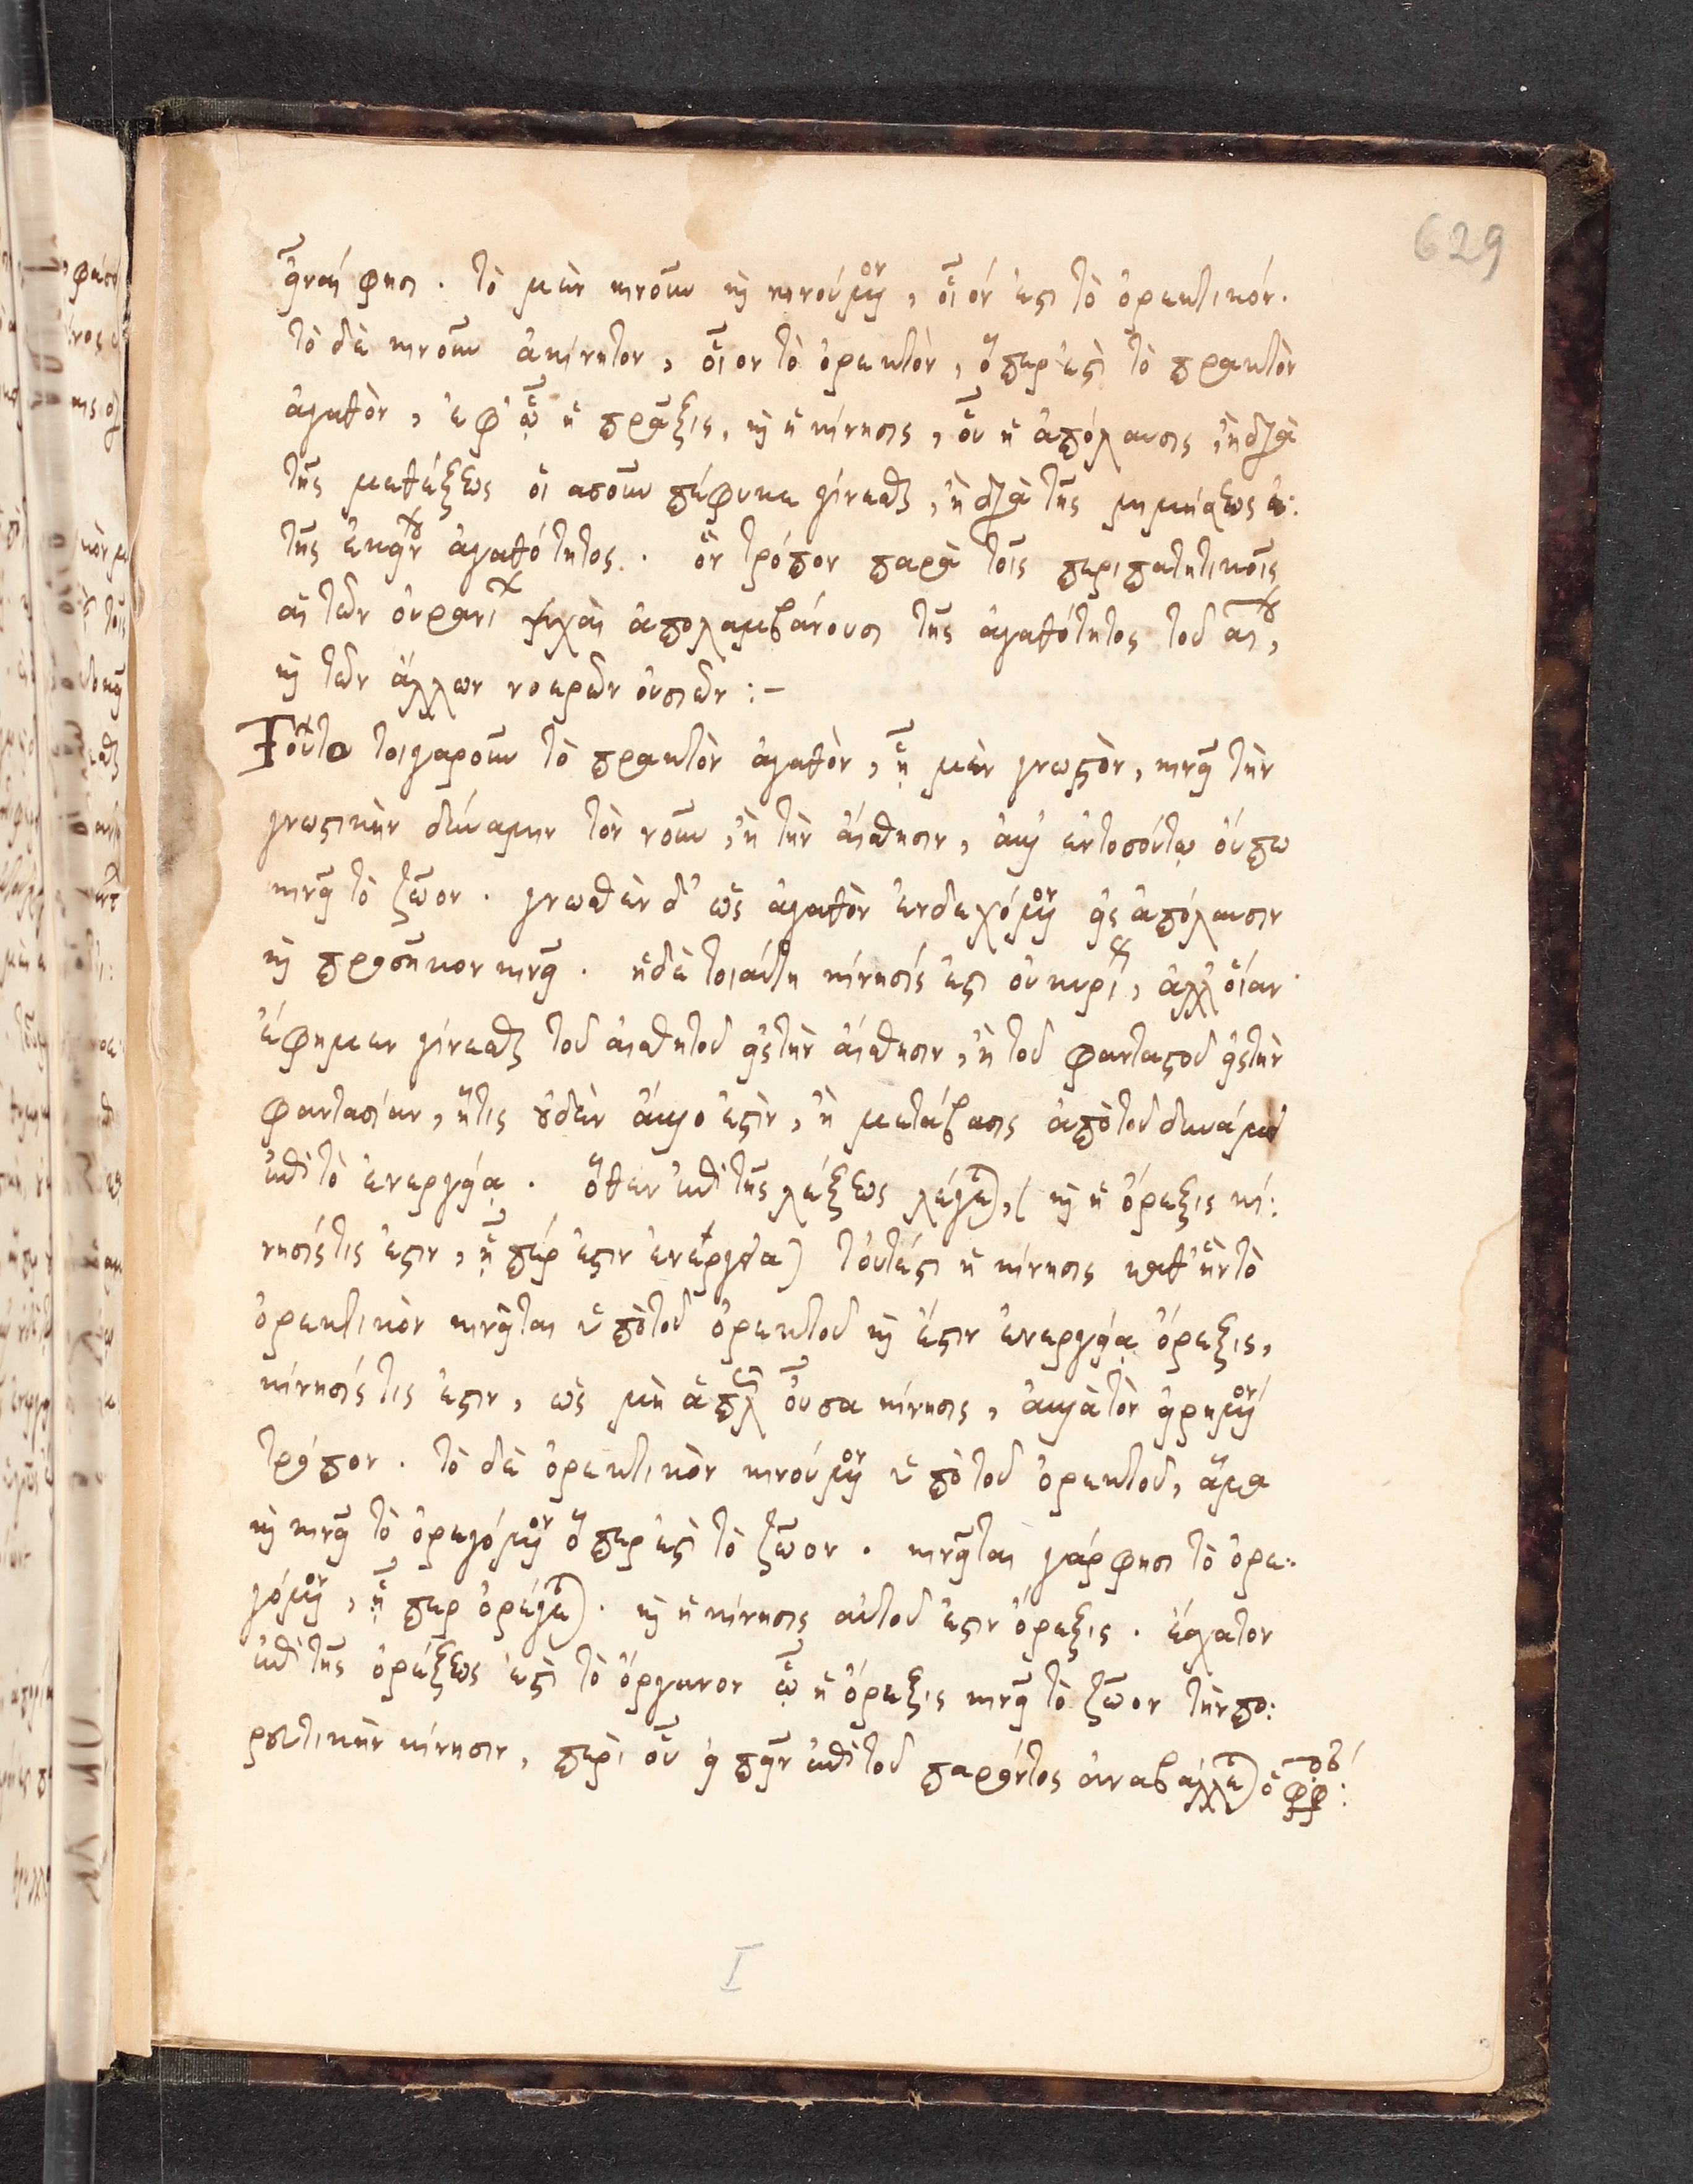 629
εἶναί φησι. τὸ μὲν κινοῦν καὶ κινούμενον, οἷόν ἐστι τὸ ὀρεκτικόν.
τὸ δὲ κινοῦν ἀκίνητον, οἷον τὸ ὀρεκτὸν, ὅπερ ἐστὶ τὸ πρακτὸν
ἀγαθὸν, ἐφ' ᾧ ἡ πρᾶξις, καὶ ἡ κίνησις, οὗ ἡ ἀπόλαυσις, ἢ διὰ
τῆς μεθέξεως πέφυκε γίνεσθαι, ἢ διὰ τῆς μιμήσεως
τῆς ἐκείνου ἀγαθότητος. ὃν τρόπον παρὰ τοῖς περιπατητικοῖς
αἱ τῶν οὐρανίων ψυχαὶ ἀπολαμβάνουσι τῆς ἀγαθότητος τοῦ αου,
καὶ τῶν ἄλλων νοερῶν οὐσιῶν :-
Τοῦτο τοιγαροῦν τὸ πρακτὸν ἀγαθὸν, ᾗ μὲν γνωστὸν, κινεῖ τὴν
γνωστικὴν δύναμιν τὸν νοῦν, ἢ τὴν αἴσθησιν, ἀλλ' ἐν τοσούτῳ οὔπω
κινεῖ τὸ ζῶον. γνωσθὲν δ' ὡς ἀγαθὸν ἐνδεχόμενον εἰς ἀπόλαυσιν
καὶ προσῆκον κινεῖ. ἡ δὲ τοιαύτη κίνησίς ἐστι οὐ κυρίως, ἀλλ' οἵαν
ἔφημεν γίνεσθαι τοῦ αἰσθητοῦ εἰς τὴν αἴσθησιν, ἢ τοῦ φανταστοῦ εἰς τὴν
φαντασίαν, ἥτις οὐδὲν ἄλλο ἐστὶν, ἢ μετάβασις ἀπὸ τοῦ δυνάμει
ἐπὶ τὸ ἐνεργείᾳ. ὅθεν ἐπὶ τῆς λέξεως λέγεται, (καὶ ἡ ὄρεξις κί:
νησίς τις ἐστιν, ᾗ πέρ ἐστιν ἐνέργεια) τουτέστι ἡ κίνησις καθ' ἣν τὸ
ὀρεκτικὸν κινεῖται ὑπὸ τοῦ ὀρεκτοῦ καὶ ἔστιν ἐνεργείᾳ ὄρεξις,
κίνησίς τις ἐστιν, ὡς μὴ ἁπλῶς οὖσα κίνησις, ἀλλὰ τὸν εἰρημένον
τρόπον. τὸ δὲ ὀρεκτικὸν κινούμενον ὑπὸ τοῦ ὀρεκτοῦ, ἅμα
καὶ κινεῖ τὸ ὀρεγόμενον ὅπερ ἐστὶ τὸ ζῶον. κινεῖται γάρ φησι τὸ ὀρε:
γόμενον, ᾗ περ ὀρέγεται. καὶ ἡ κίνησις αὐτοῦ ἐστιν ὄρεξις. ἔσχατον
ἐπὶ τῆς ὀρέξεως ἐστὶ τὸ ὄργανον ᾧ ἡ ὄρεξις κινεῖ τὸ ζῶον τὴν πο:
ρευτικὴν κίνησιν, περὶ οὗ εἰπεῖν ἐπὶ τοῦ παρόντος ἀναβάλλεται ὁ
I